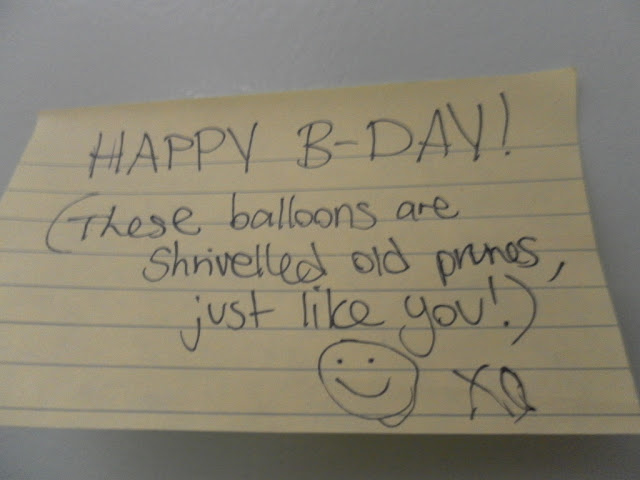 HAPPY B-DAY!
(These balloons are
shrivelled old prunes,
just like you!)
XO